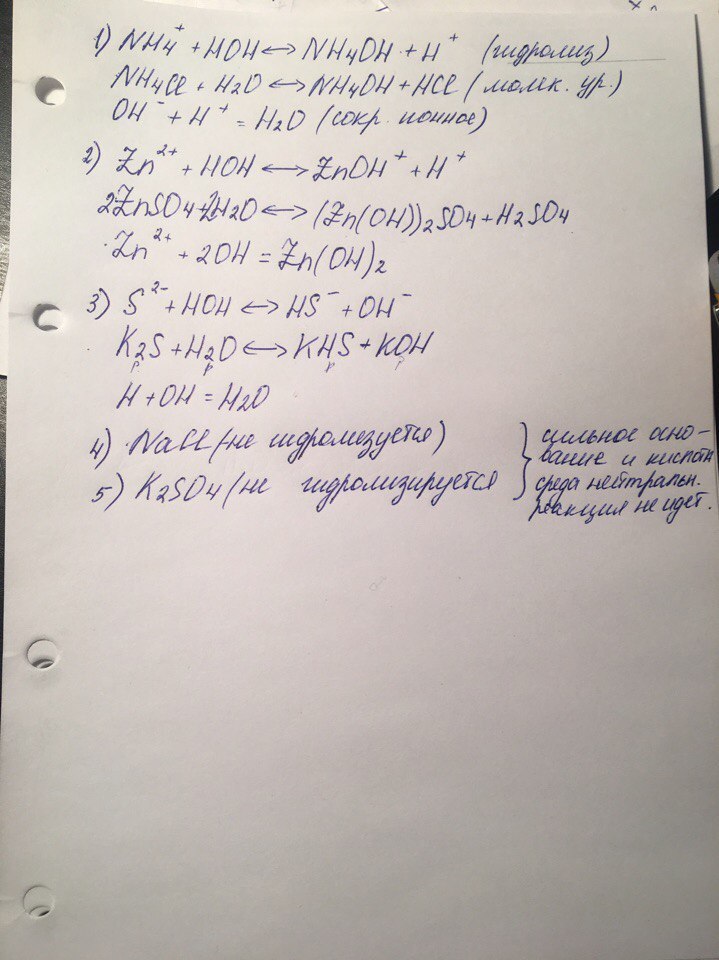 1) NH₄⁺ + HOH ↔ NH₄OH + H⁺ (гидролиз)
NH₄Cl + H₂O ↔ NH₄OH + HCl (молек. ур.)
OH⁻ + H⁺ = H₂O (сокр. ионное)
2) Zn²⁺ + HOH ↔ ZnOH⁺ + H⁺
2ZnSO₄+2H₂O ↔ (Zn(OH))₂SO₄ + H₂SO₄
Zn²⁺ + 2OH = Zn(OH)₂
3) S²⁻ + HOH ↔ HS⁻ + OH⁻
K₂S + H₂O ↔ KHS + KOH
р р р р
H + OH = H₂O
4) NaCl (не гидролизуется)
5) K₂SO₄ (не гидролизируется
} сильное осно-
вание и кислотн
среда нейтральн.
реакция не идет.